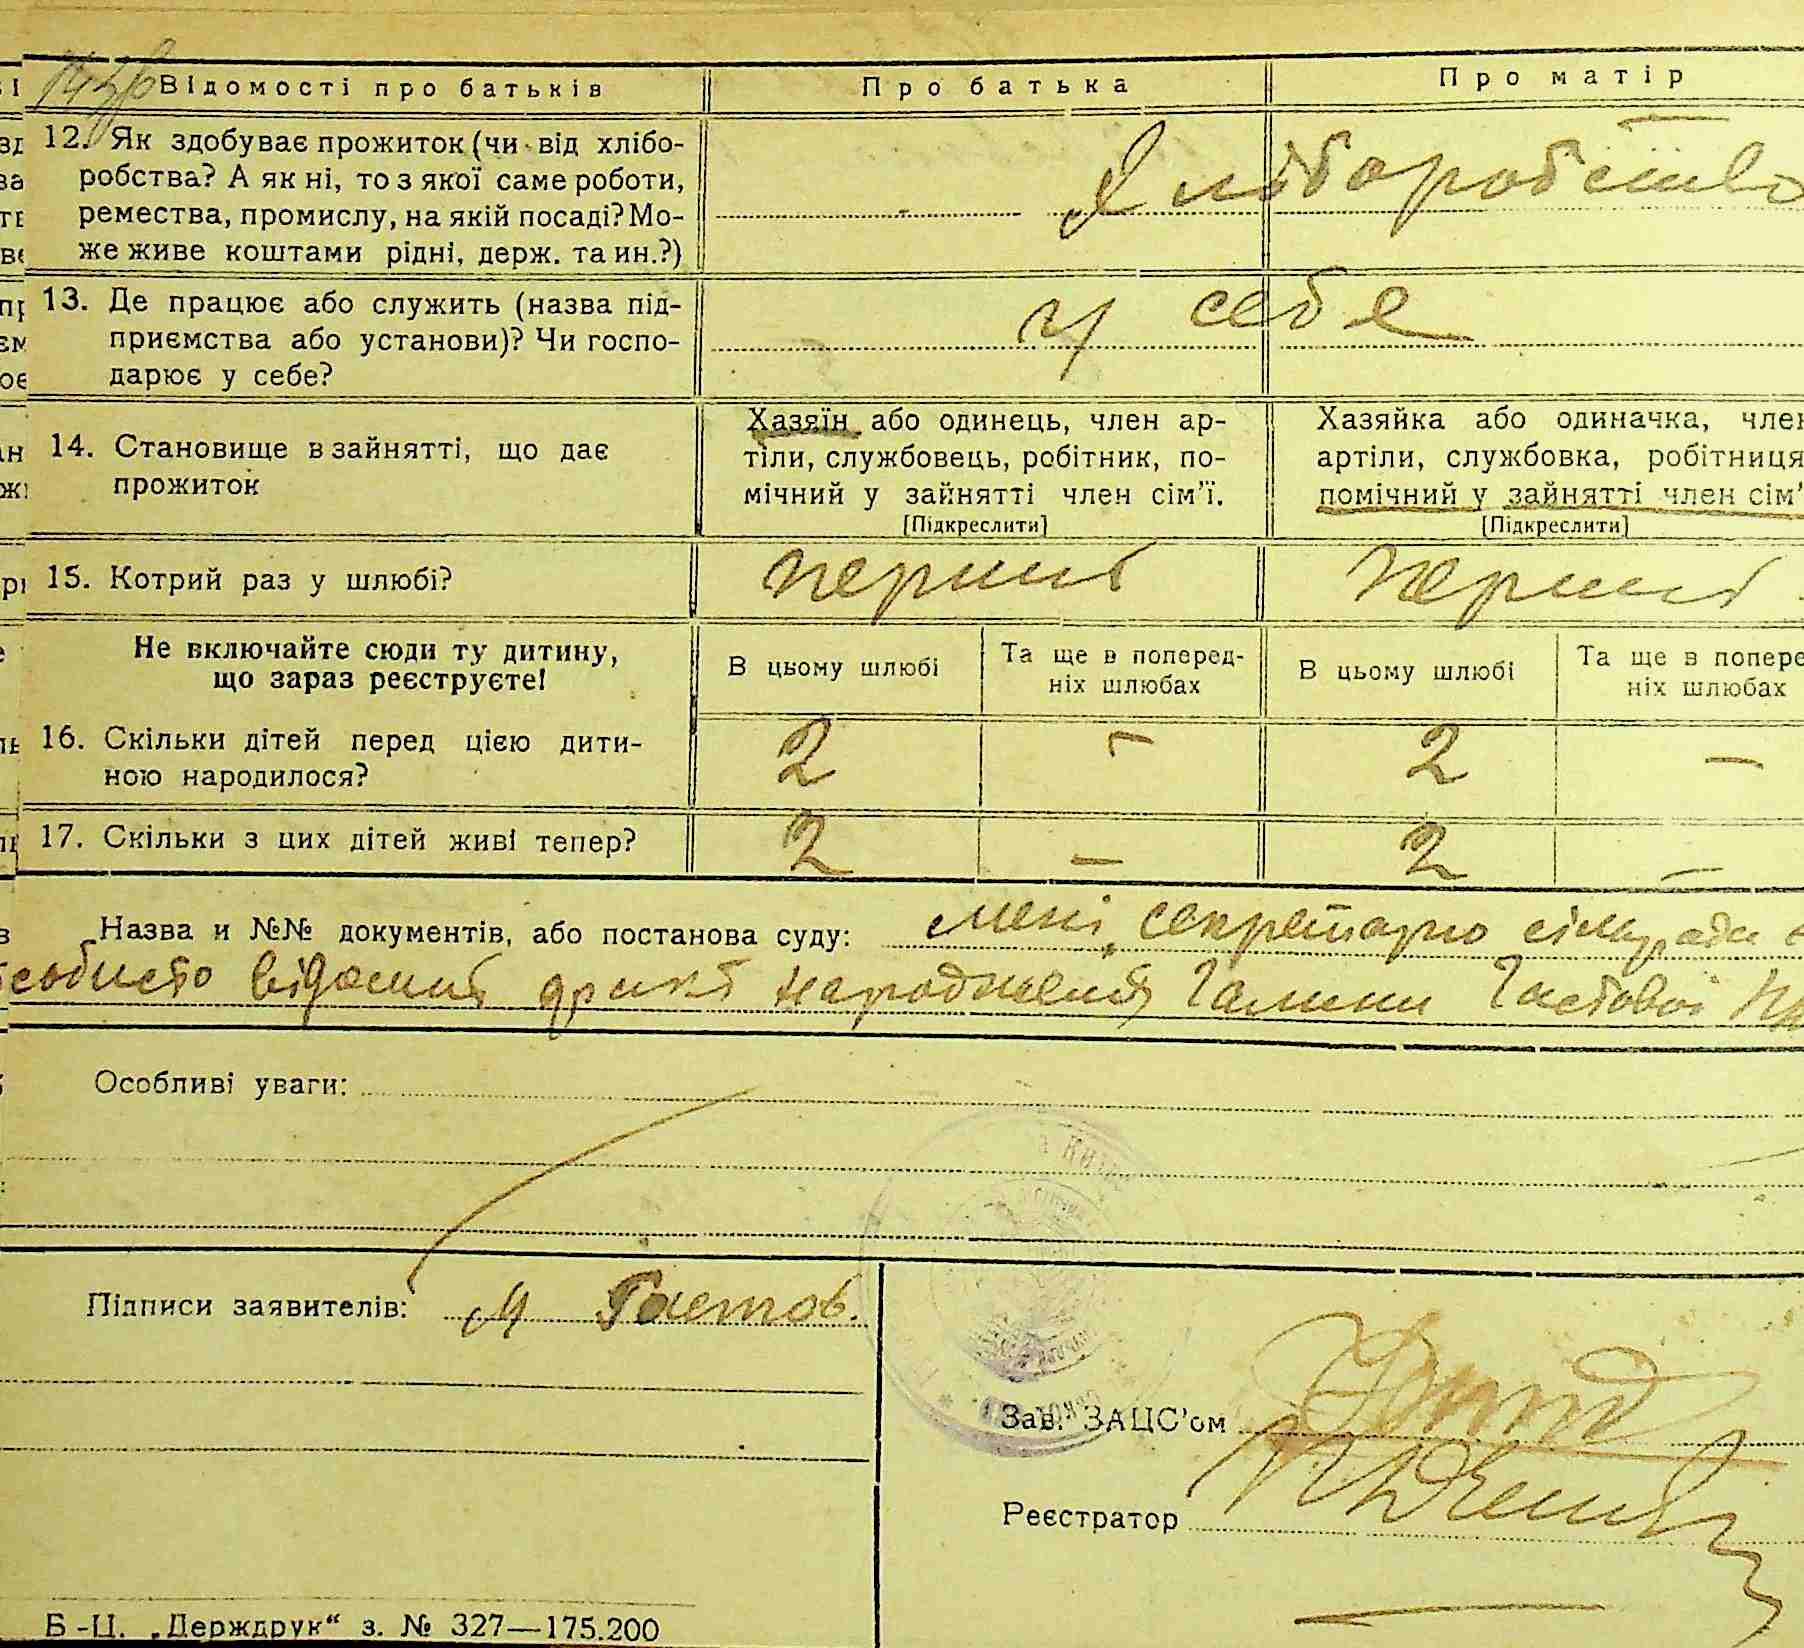 Відомості про батьків Про батька Про матір
12. Як здобуває прожиток (чи від хлібо-
робства? А як ні, то з якої саме роботи,
ремества, промислу, на якій посаді? Мо-
же живе коштами рідні, держ. та ин.?)
Хліборобство
13. Де працює або служить (назва під-
приємства або установи)? Чи госпо-
дарює у себе?
у себе
14. Становище в зайнятті, що дає
прожиток
Хазяїн або одинець, член ар-
тіли, службовець, робітник, по-
мічний у зайнятті член сім'ї.
[Підкреслити]
Хазяйка або одиначка, член
артіли, службовка, робітниця
помічний у зайнятті член сім'
[Підкреслити]
15. Котрий раз у шлюбі? перший перший
Не включайте сюди ту дитину,
що зараз реєструєте!
В цьому шлюбі
Та ще в поперед-
ніх шлюбах
В цьому шлюбі
Та ще в попере
ніх шлюбах
16. Скільки дітей перед цією дити-
ною народилося?
2 – 2 –
17. Скільки з цих дітей живі тепер? 2 – 2 –
Назва и №№ документів, або постанова суду: мені, секретарю сільради
особисто відомий факт народження Галини Гастової
Особливі уваги:
Підписи заявителів: М Гастов.
Зав. ЗАЦС'ом
Реєстратор
Б-Ц. „Держдрук“ з. № 327—175.200